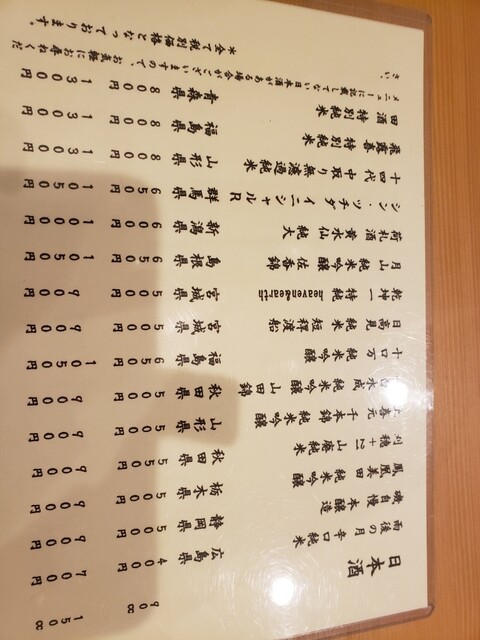 日本酒 90cc 150cc
雨後の月 辛口純米 広島県 400円 700円
磯自慢 本醸造 静岡県 550円 900円
鳳凰美田 純米吟醸 栃木県 550円 900円
刈穂 +12 山廃純米 秋田県 550円 900円
喜元 千本錦 純米吟醸 山形県 550円 900円
水成 純米吟醸 山田錦 秋田県 550円 900円
十口万 純米吟醸 福島県 650円 1050円
日高見 純米 短稈渡船 宮城県 500円 900円
乾坤一 特純 heaven&earth 宮城県 500円 900円
月山 純米吟醸 佐香錦 島根県 650円 1050円
荷札酒 黄水仙 純大 新潟県 600円 1000円
シン・ツチダ イニシャルR 群馬県 650円 1050円
十四代 中取り無濾過純米 山形県 800円 1300円
飛露喜 特別純米 福島県 800円 1300円
田酒 特別純米 青森県 800円 1300円
メニューに記載してない日本酒がある場合がございますので、お気軽にお尋ねくだ
さい。
＊全て税別価格となっております。